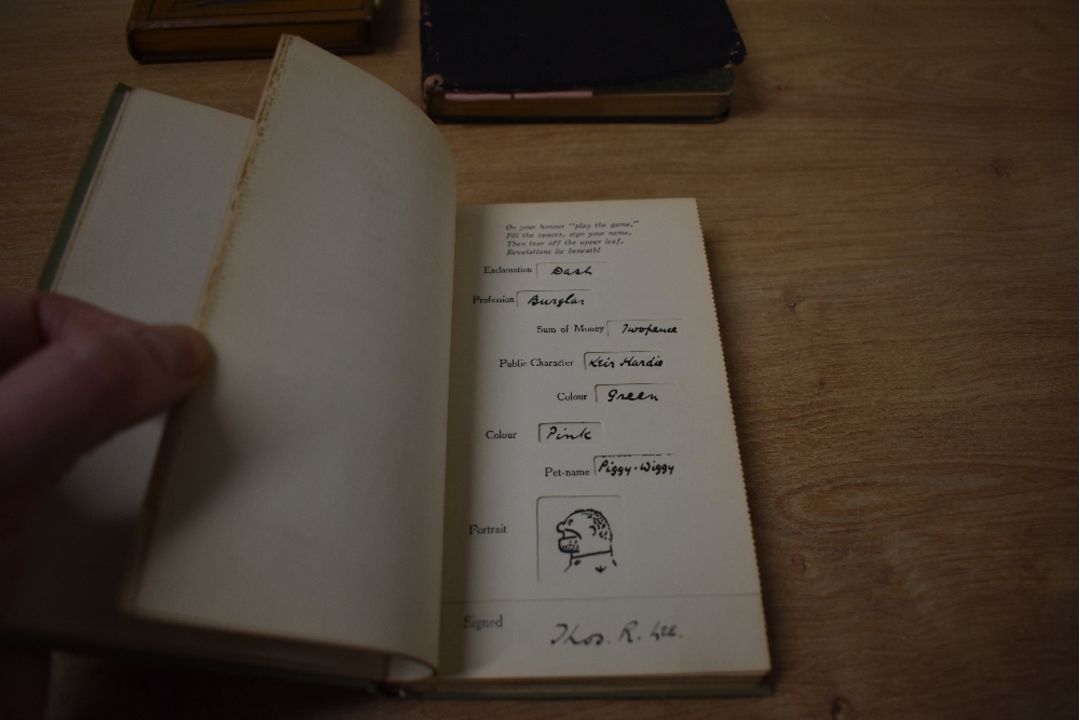 On your honour "play the game,"
Fill the spaces, sign your name,
Then tear off the upper leaf,
Revelations lie beneath!
Exclamation Dash
Profession Burglar
Sum of Money Twopence
Public Character Keir Hardie
Colour Green
Colour Pink
Pet-name Piggy-Wiggy
Portrait
Signed Thos. R. Lee.